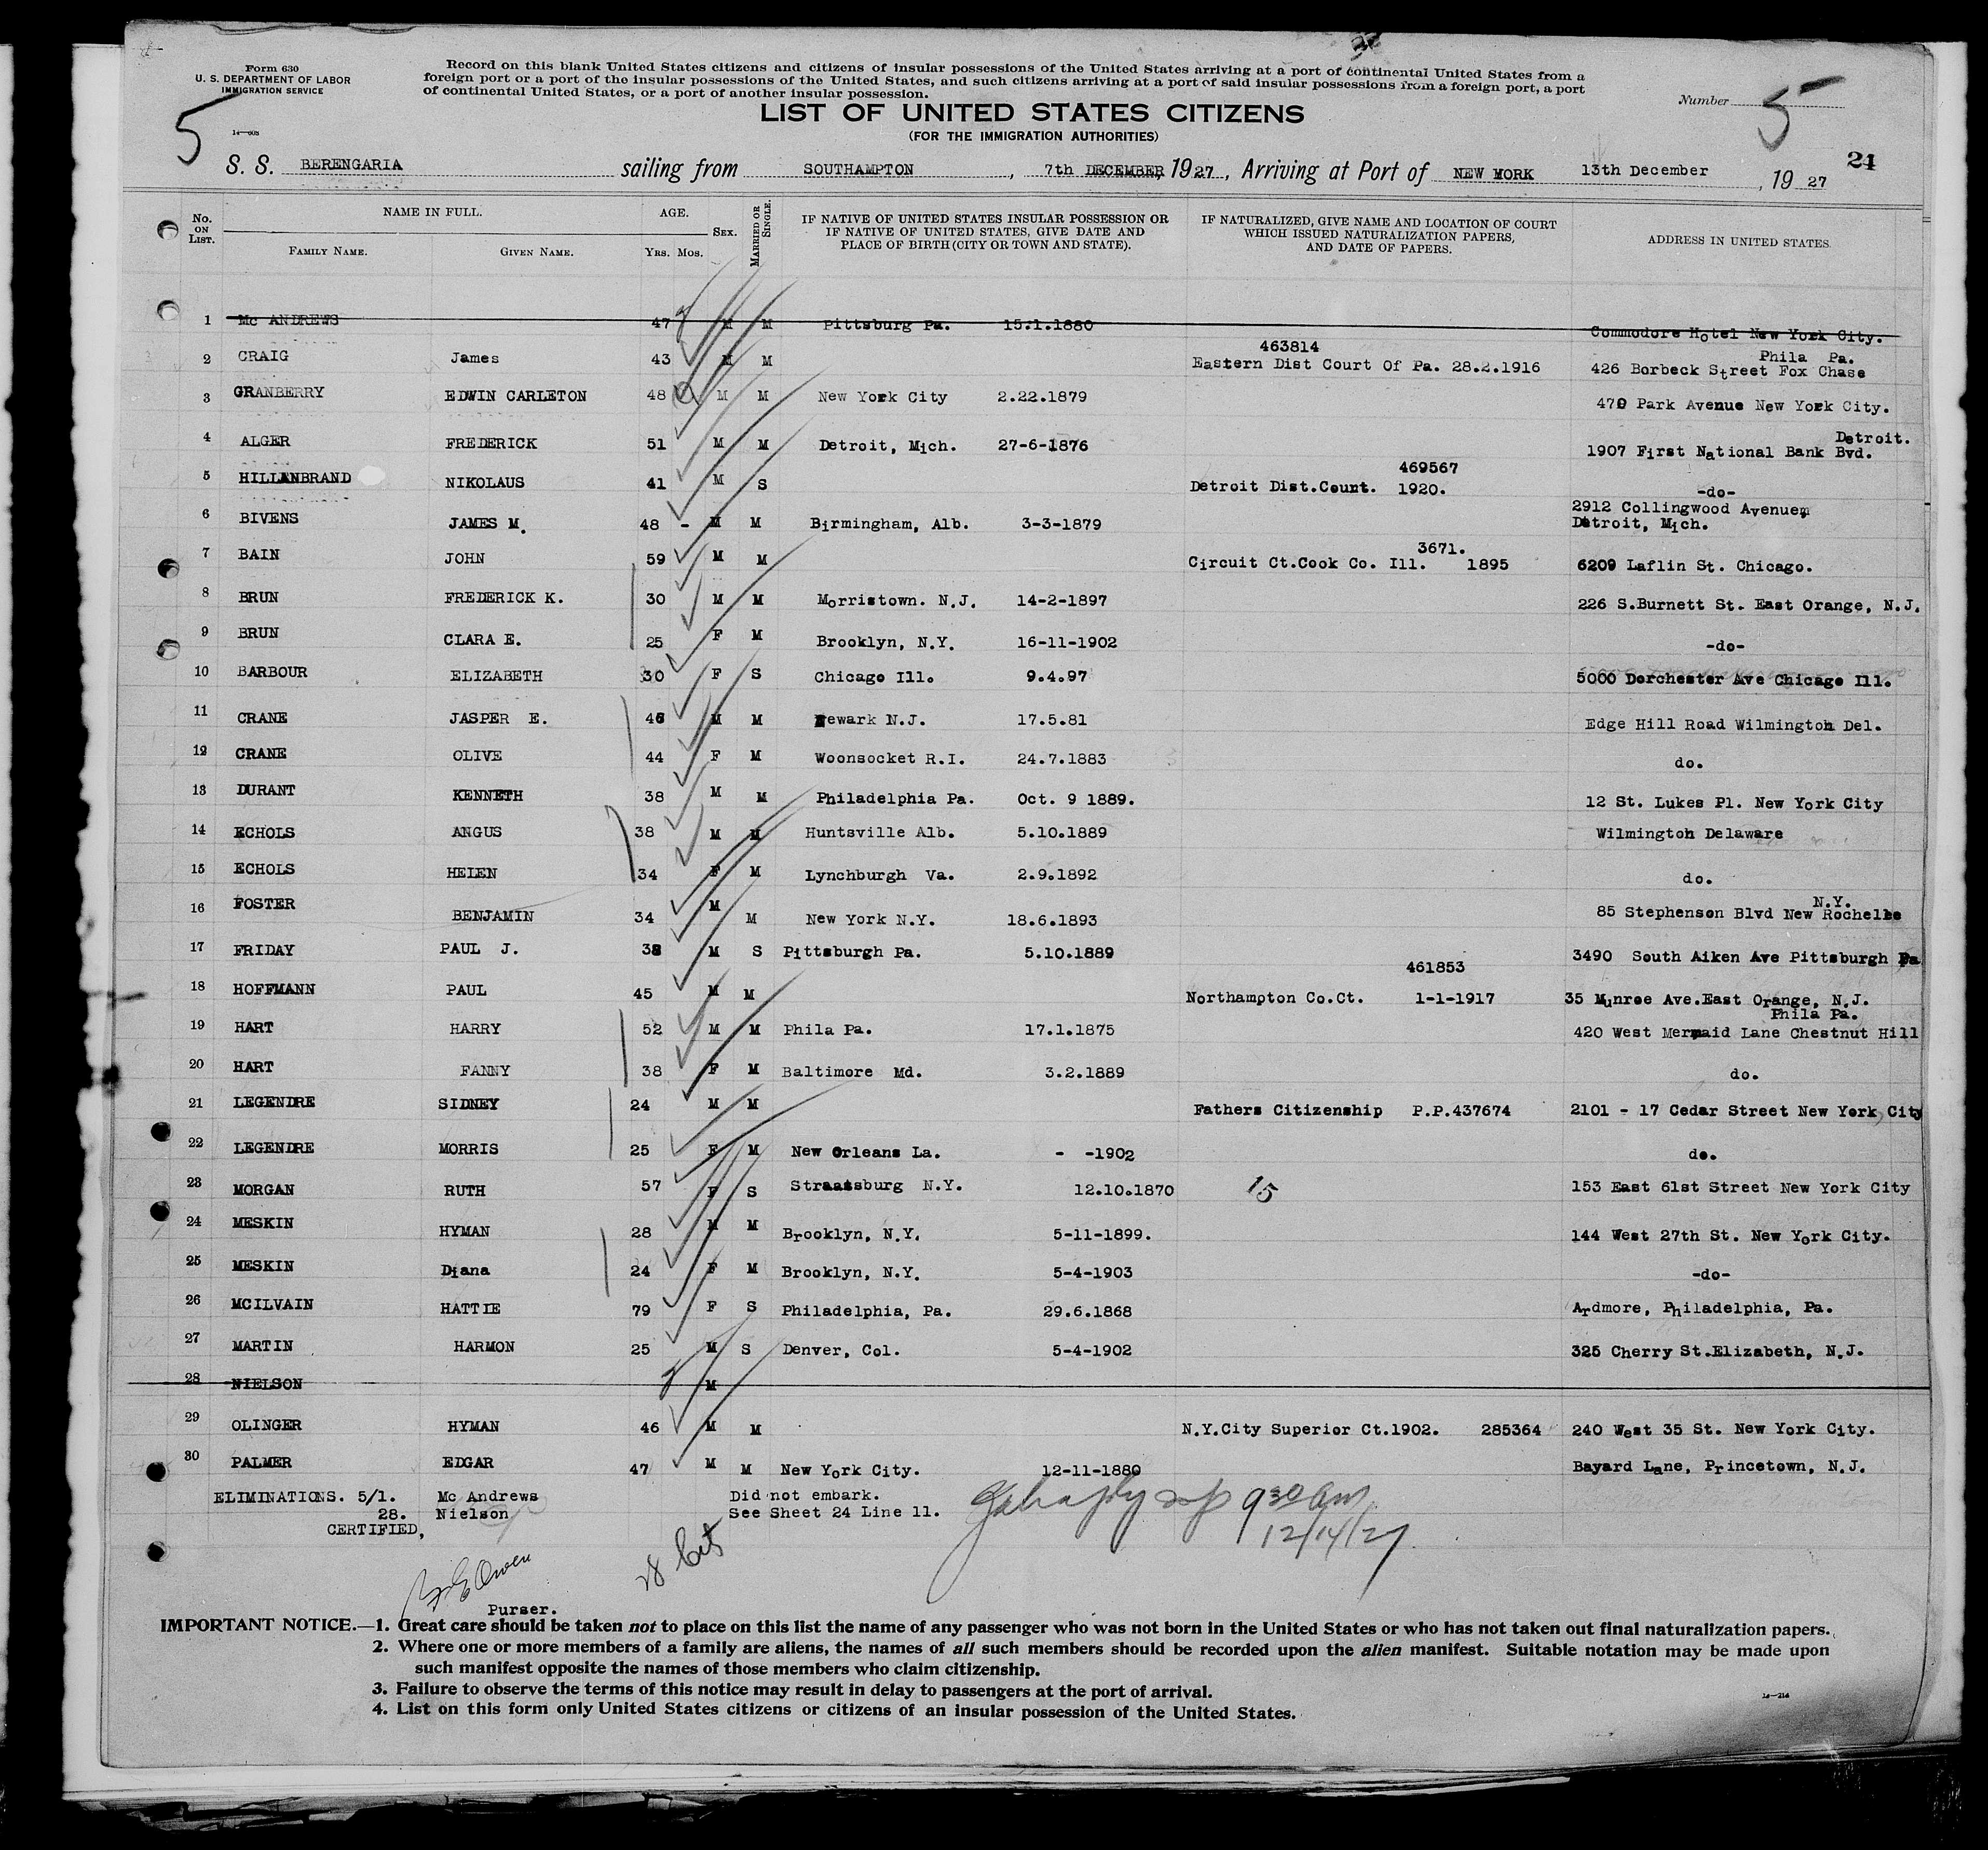 Form 630
U. S. DEPARTMENT OF LABOR
IMMIGRATION SERVICE
Record on this blank United States citizens and citizens of insular possessions of the United States arriving at a port of continental United States from a
foreign port or a port of the insular possessions of the United States, and such citizens arriving at a port of said insular possessions from a foreign port, a port
of continental United States, or a port of another insular possession.
LIST OF UNITED STATES CITIZENS
(FOR THE IMMIGRATION AUTHORITIES)
Number 5
5
24
S. S. BERENGARIA sailing from SOUTHAMPTON, 7th DECEMBER, 1927, Arriving at Port of NEW YORK 13th December, 1927
No. ON LIST. NAME IN FULL. FAMILY NAME. GIVEN NAME. AGE. YRS. MOS. SEX. MARRIED OR SINGLE. IF NATIVE OF UNITED STATES INSULAR POSSESSION OR IF NATIVE OF UNITED STATES, GIVE DATE AND PLACE OF BIRTH (CITY OR TOWN AND STATE). IF NATURALIZED, GIVE NAME AND LOCATION OF COURT WHICH ISSUED NATURALIZATION PAPERS, AND DATE OF PAPERS. ADDRESS IN UNITED STATES.
1 Mc ANDREWS 47 M M Pittsburg Pa. 15.1.1880 Commodore Hotel New York City.
2 CRAIG James 43 M M 463814 Eastern Dist Court Of Pa. 28.2.1916 Phila Pa. 426 Borbeck Street Fox Chase
3 GRANBERRY EDWIN CARLETON 48 M M New York City 2.22.1879 470 Park Avenue New York City.
4 ALGER FREDERICK 51 M M Detroit, Mich. 27-6-1876 Detroit. 1907 First National Bank Bvd.
5 HILLANBRAND NIKOLAUS 41 M S 469567 Detroit Dist.Count. 1920. -do-
6 BIVENS JAMES M. 48 - M M Birmingham, Alb. 3-3-1879 2912 Collingwood Avenue, Detroit, Mich.
7 BAIN JOHN 59 M M 3671. Circuit Ct.Cook Co. Ill. 1895 6209 Laflin St. Chicago.
8 BRUN FREDERICK K. 30 M M Morristown. N.J. 14-2-1897 226 S.Burnett St. East Orange, N.J.
9 BRUN CLARA E. 25 F M Brooklyn, N.Y. 16-11-1902 -do-
10 BARBOUR ELIZABETH 30 F S Chicago Ill. 9.4.97 5000 Dorchester Ave Chicago Ill.
11 CRANE JASPER E. 46 M M Newark N.J. 17.5.81 Edge Hill Road Wilmington Del.
12 CRANE OLIVE 44 F M Woonsocket R.I. 24.7.1883 do.
13 DURANT KENNETH 38 M M Philadelphia Pa. Oct. 9 1889. 12 St. Lukes Pl. New York City
14 ECHOLS ANGUS 38 M M Huntsville Alb. 5.10.1889 Wilmington Delaware
15 ECHOLS HELEN 34 F M Lynchburgh Va. 2.9.1892 do.
16 FOSTER BENJAMIN 34 M M New York N.Y. 18.6.1893 N.Y. 85 Stephenson Blvd New Rochelle
17 FRIDAY PAUL J. 38 M S Pittsburgh Pa. 5.10.1889 3490 South Aiken Ave Pittsburgh Pa
18 HOFFMANN PAUL 45 M M 461853 Northampton Co.Ct. 1-1-1917 35 Munroe Ave.East Orange, N.J.
19 HART HARRY 52 M M Phila Pa. 17.1.1875 Phila Pa. 420 West Mermaid Lane Chestnut Hill
20 HART FANNY 38 F M Baltimore Md. 3.2.1889 do.
21 LEGENDRE SIDNEY 24 M M Fathers Citizenship P.P.437674 2101 - 17 Cedar Street New York City
22 LEGENDRE MORRIS 25 F M New Orleans La. - -1902 do.
23 MORGAN RUTH 57 F S Straatsburg N.Y. 12.10.1870 15 153 East 61st Street New York City
24 MESKIN HYMAN 28 M M Brooklyn, N.Y. 5-11-1899. 144 West 27th St. New York City.
25 MESKIN Diana 24 F M Brooklyn, N.Y. 5-4-1903 -do-
26 MCILVAIN HATTIE 79 F S Philadelphia, Pa. 29.6.1868 Ardmore, Philadelphia, Pa.
27 MARTIN HARMON 25 M S Denver, Col. 5-4-1902 325 Cherry St.Elizabeth, N.J.
28 NIELSON M
29 OLINGER HYMAN 46 M M N.Y.City Superior Ct.1902. 285364 240 West 35 St. New York City.
30 PALMER EDGAR 47 M M New York City. 12-11-1880 Bayard Lane, Princetown, N.J.
ELIMINATIONS. 5/1. Mc Andrews Did not embark.
28. Nielson See Sheet 24 Line 11.
CERTIFIED,
9 30 am
12/14/27
Owen
Purser.
IMPORTANT NOTICE.—1. Great care should be taken not to place on this list the name of any passenger who was not born in the United States or who has not taken out final naturalization papers.
2. Where one or more members of a family are aliens, the names of all such members should be recorded upon the alien manifest. Suitable notation may be made upon
such manifest opposite the names of those members who claim citizenship.
3. Failure to observe the terms of this notice may result in delay to passengers at the port of arrival.
4. List on this form only United States citizens or citizens of an insular possession of the United States.